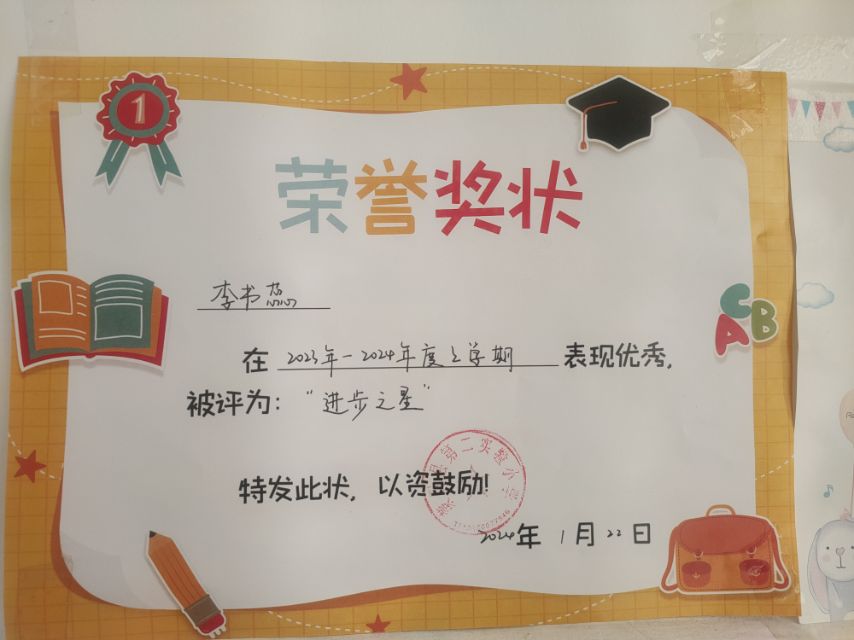 1
荣誉奖状
李书蕊
在 2023年-2024年度上学期 表现优秀,
被评为: “进步之星”
特发此状, 以资鼓励!
第二实验小学
2024年 1月22日
A C B